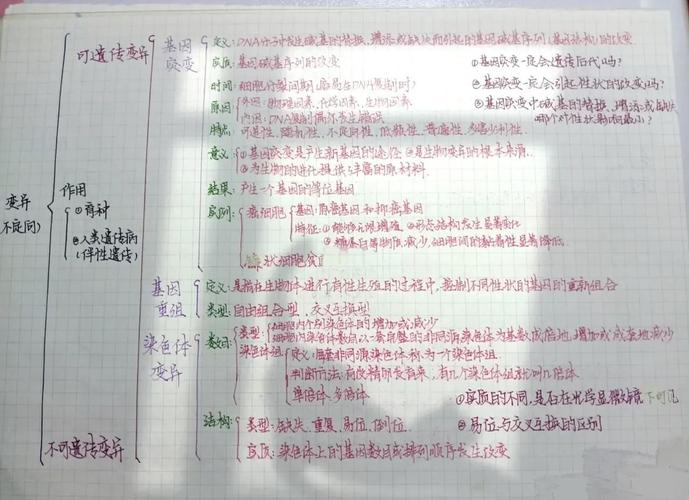 可遗传变异
基因突变
定义:DNA分子中发生碱基的替换、增添或缺失而引起的基因碱基序列(基因结构)的改变
实质:基因碱基序列的改变
①基因突变一定会遗传后代吗?
时间:细胞分裂间期
②基因突变一定会引起性状的改变吗?
原因:外因:物理因素、化学因素、生物因素
③基因突变中碱基的替换、增添或缺失
哪个对性状影响最小?
内因:DNA复制偶尔发生错误
特点:可遗传性、随机性、不定向性、低频性、普遍性、多害少利性
意义:①基因突变是产生新基因的途径 ②是生物变异的根本来源
③为生物的进化提供了丰富的原材料
结果:产生一个基因的等位基因
作用
①育种
②人类遗传病
(伴性遗传)
变异
不定向)
实例:癌细胞
基因:原癌基因和抑癌基因
特征:①能够无限增殖 ②形态结构发生显著变化
③糖蛋白等物质减少,细胞间的黏着性显著降低
镰状细胞贫血
基因重组
定义:是指在生物体进行有性生殖的过程中,控制不同性状的基因的重新组合
类型:自由组合型、交叉互换型
染色体变异
数目:
类型:细胞内个别染色体的增加或减少
细胞内染色体数目以一套完整的非同源染色体为基数成倍地增加或成套地减少
染色体组
定义:非同源染色体称为一个染色体组
判断方法:有受精卵发育来,有几个染色体组就叫几倍体
单倍体 多倍体
①实质的不同,是否在光学显微镜下可见
结构:
类型:缺失、重复、易位、倒位
②易位与交叉互换的区别
实质:染色体上的基因数目或排列顺序发生改变
不可遗传变异